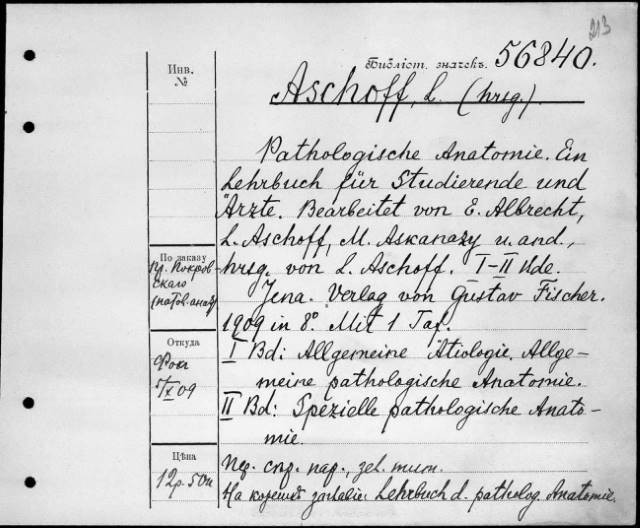 213
Библіот. значекъ. 56840.
Инв.
№
Aschoff, L. (hrsg.).
Pathologische Anatomie. Ein
Lehrbuch für Studierende und
Ärzte. Bearbeitet von E. Albrecht,
L. Aschoff, M. Askanazy u. and.,
hrsg. von L. Aschoff. I-II Bde.
Jena. Verlag von Gustav Fischer.
1909 in 8°. Mit 1 Taf.
I Bd: Allgemeine Ätiologie. Allge-
meine pathologische Anatomie.
II Bd: Spezielle pathologische Anato-
mie.
По заказу
пр. Покров-
скаго
(патол. анат)
Откуда
5/X 09
Цѣна
12р. 50к
Пер. спр. пар., зел. тит.
На корешкѣ заглавіе: Lehrbuch d. patholog. Anatomie.